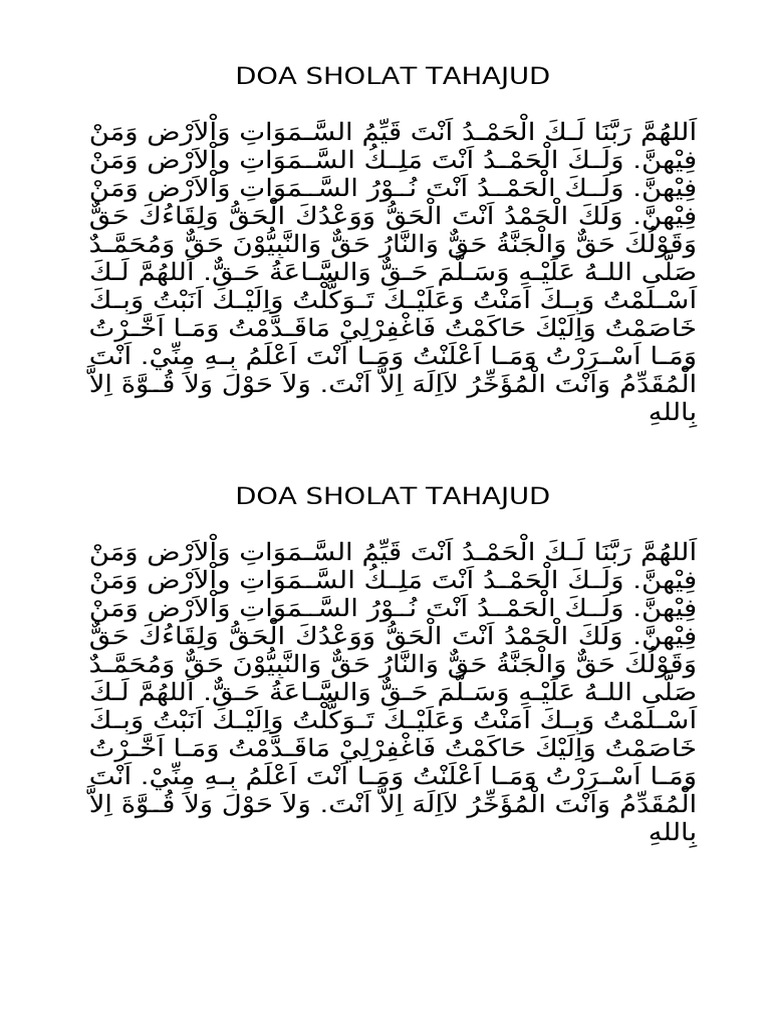 DOA SHOLAT TAHAJUD
اَللهُمَّ رَبَّنَا لَـكَ الْحَمْـدُ اَنْتَ قَيِّمُ السَّـمَوَاتِ وَاْلاَرْض وَمَنْ
فِيْهنَّ. وَلَـكَ الْحَمْـدُ اَنْتَ مَلِـكُ السَّـمَوَاتِ واْلاَرْض وَمَنْ
فِيْهنَّ. وَلَـكَ الْحَمْـدُ اَنْتَ نُـوْرُ السَّـمَوَاتِ وَاْلاَرْض وَمَنْ
فِيْهنَّ. وَلَكَ الْحَمْدُ اَنْتَ الْحَقُّ وَوَعْدُكَ الْحَقُّ وَلِقَاءُكَ حَقٌّ
وَقَوْلُكَ حَقٌّ وَالْجَنَّةُ حَقٌّ وَالنَّارُ حَقٌّ وَالنَّبِيُّوْنَ حَقٌّ وَمُحَمَّـدٌ
صَلَّى اللـهُ عَلَيْـهِ وَسَـلَّمَ حَـقٌّ وَالسَّـاعَةُ حَـقٌّ. اَللهُمَّ لَـكَ
اَسْـلَمْتُ وَبِـكَ اَمَنْتُ وَعَلَيْـكَ تَـوَكَّلْتُ وَاِلَيْـكَ اَنَبْتُ وَبِـكَ
خَاصَمْتُ وَاِلَيْكَ حَاكَمْتُ فَاغْفِرْلِيْ مَاقَـدَّمْتُ وَمَـا اَخَّـرْتُ
وَمَـا اَسْـرَرْتُ وَمَـا اَعْلَنْتُ وَمَـا اَنْتَ اَعْلَمُ بِـهِ مِنِّيْ. اَنْتَ
الْمُقَدِّمُ وَاَنْتَ الْمُؤَخِّرُ لاَاِلَهَ اِلاَّ اَنْتَ. وَلاَ حَوْلَ وَلاَ قُـوَّةَ اِلاَّ
بِاللهِ
DOA SHOLAT TAHAJUD
اَللهُمَّ رَبَّنَا لَـكَ الْحَمْـدُ اَنْتَ قَيِّمُ السَّـمَوَاتِ وَاْلاَرْض وَمَنْ
فِيْهنَّ. وَلَـكَ الْحَمْـدُ اَنْتَ مَلِـكُ السَّـمَوَاتِ واْلاَرْض وَمَنْ
فِيْهنَّ. وَلَـكَ الْحَمْـدُ اَنْتَ نُـوْرُ السَّـمَوَاتِ وَاْلاَرْض وَمَنْ
فِيْهنَّ. وَلَكَ الْحَمْدُ اَنْتَ الْحَقُّ وَوَعْدُكَ الْحَقُّ وَلِقَاءُكَ حَقٌّ
وَقَوْلُكَ حَقٌّ وَالْجَنَّةُ حَقٌّ وَالنَّارُ حَقٌّ وَالنَّبِيُّوْنَ حَقٌّ وَمُحَمَّـدٌ
صَلَّى اللـهُ عَلَيْـهِ وَسَـلَّمَ حَـقٌّ وَالسَّـاعَةُ حَـقٌّ. اَللهُمَّ لَـكَ
اَسْـلَمْتُ وَبِـكَ اَمَنْتُ وَعَلَيْـكَ تَـوَكَّلْتُ وَاِلَيْـكَ اَنَبْتُ وَبِـكَ
خَاصَمْتُ وَاِلَيْكَ حَاكَمْتُ فَاغْفِرْلِيْ مَاقَـدَّمْتُ وَمَـا اَخَّـرْتُ
وَمَـا اَسْـرَرْتُ وَمَـا اَعْلَنْتُ وَمَـا اَنْتَ اَعْلَمُ بِـهِ مِنِّيْ. اَنْتَ
الْمُقَدِّمُ وَاَنْتَ الْمُؤَخِّرُ لاَاِلَهَ اِلاَّ اَنْتَ. وَلاَ حَوْلَ وَلاَ قُـوَّةَ اِلاَّ
بِاللهِ